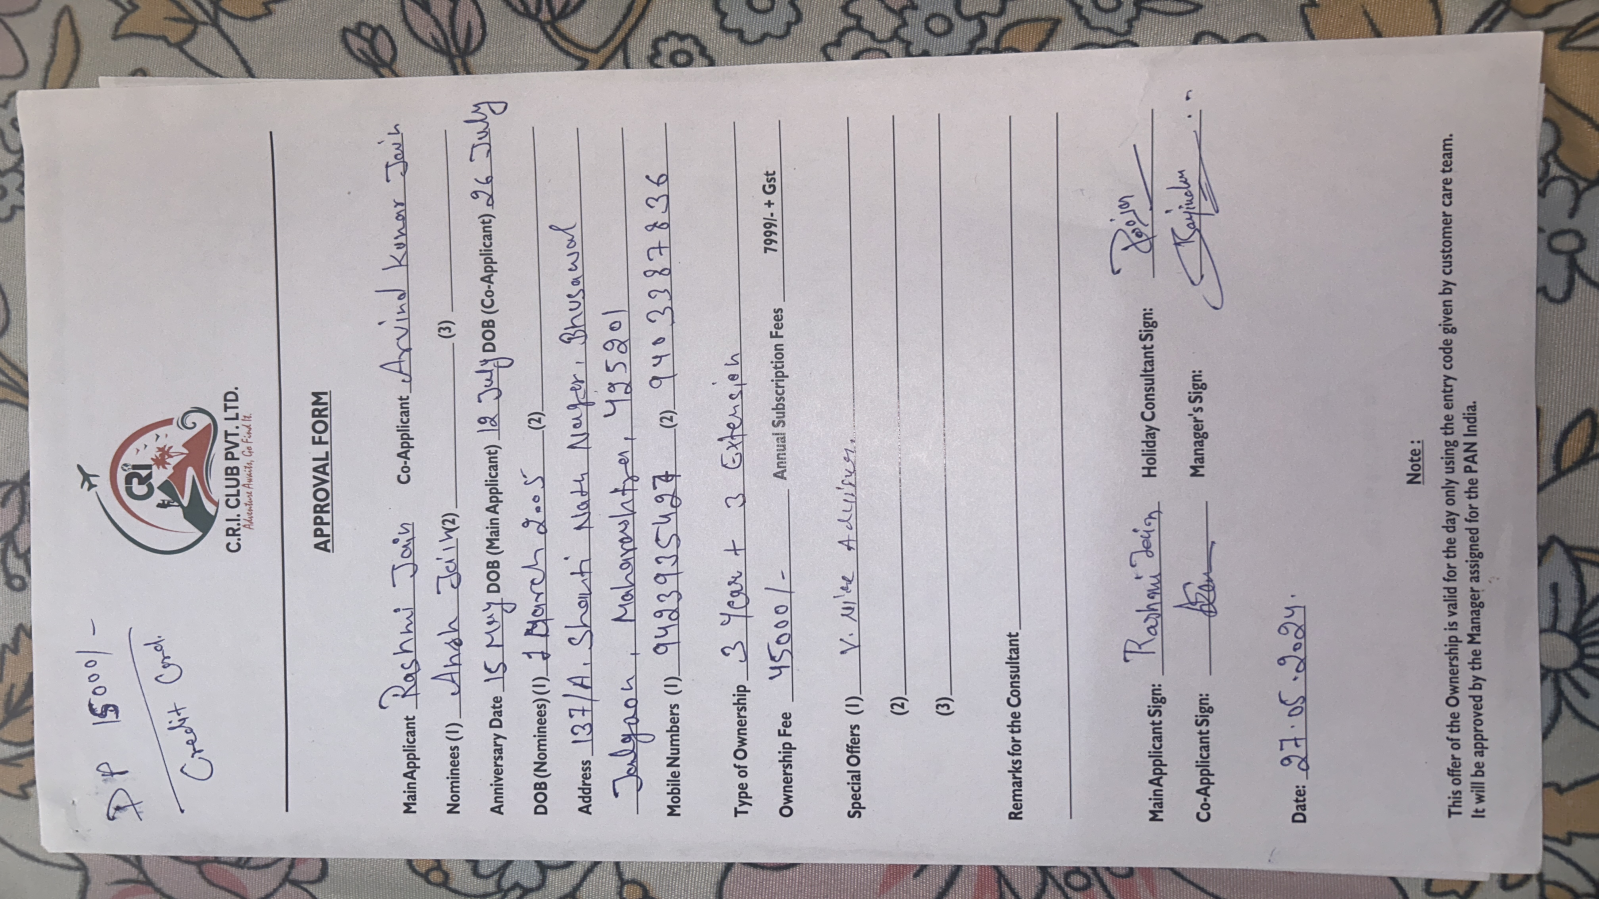 DP 15000/-
Credit Card.
CRI
C.R.I. CLUB PVT. LTD.
Adventure Awaits, Go Find It.
APPROVAL FORM
Main Applicant Rashmi Jain Co-Applicant Arvind Kumar Jain
Nominees (1) Ansh Jain (2) (3)
Anniversary Date 15 May DOB (Main Applicant) 12 July DOB (Co-Applicant) 26 July
DOB (Nominees) (1) 1 March 2005 (2)
Address 137/A, Shanti Nath Nager, Bhusawal
Jalgaon, Maharashtra, 425201
Mobile Numbers (1) 9423935427 (2) 9403387836
Type of Ownership 3 Year + 3 Extension
Ownership Fee 45000/- Annual Subscription Fees 7999/- + Gst
Special Offers (1) V. Nice
(2)
(3)
Remarks for the Consultant
Main Applicant Sign: Rashmi Jain Holiday Consultant Sign:
Co-Applicant Sign: Manager's Sign:
Date: 27.05.2024.
Note :
This offer of the Ownership is valid for the day only using the entry code given by customer care team.
It will be approved by the Manager assigned for the PAN India.